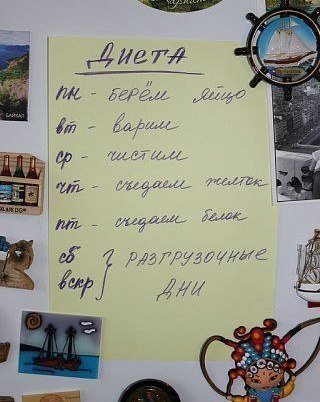 ДИЕТА
пн - берём яйцо
вт - варим
ср - чистим
чт - съедаем желток
пт - съедаем белок
сб } РАЗГРУЗОЧНЫЕ
вскр } ДНИ
БАЙКАЛ